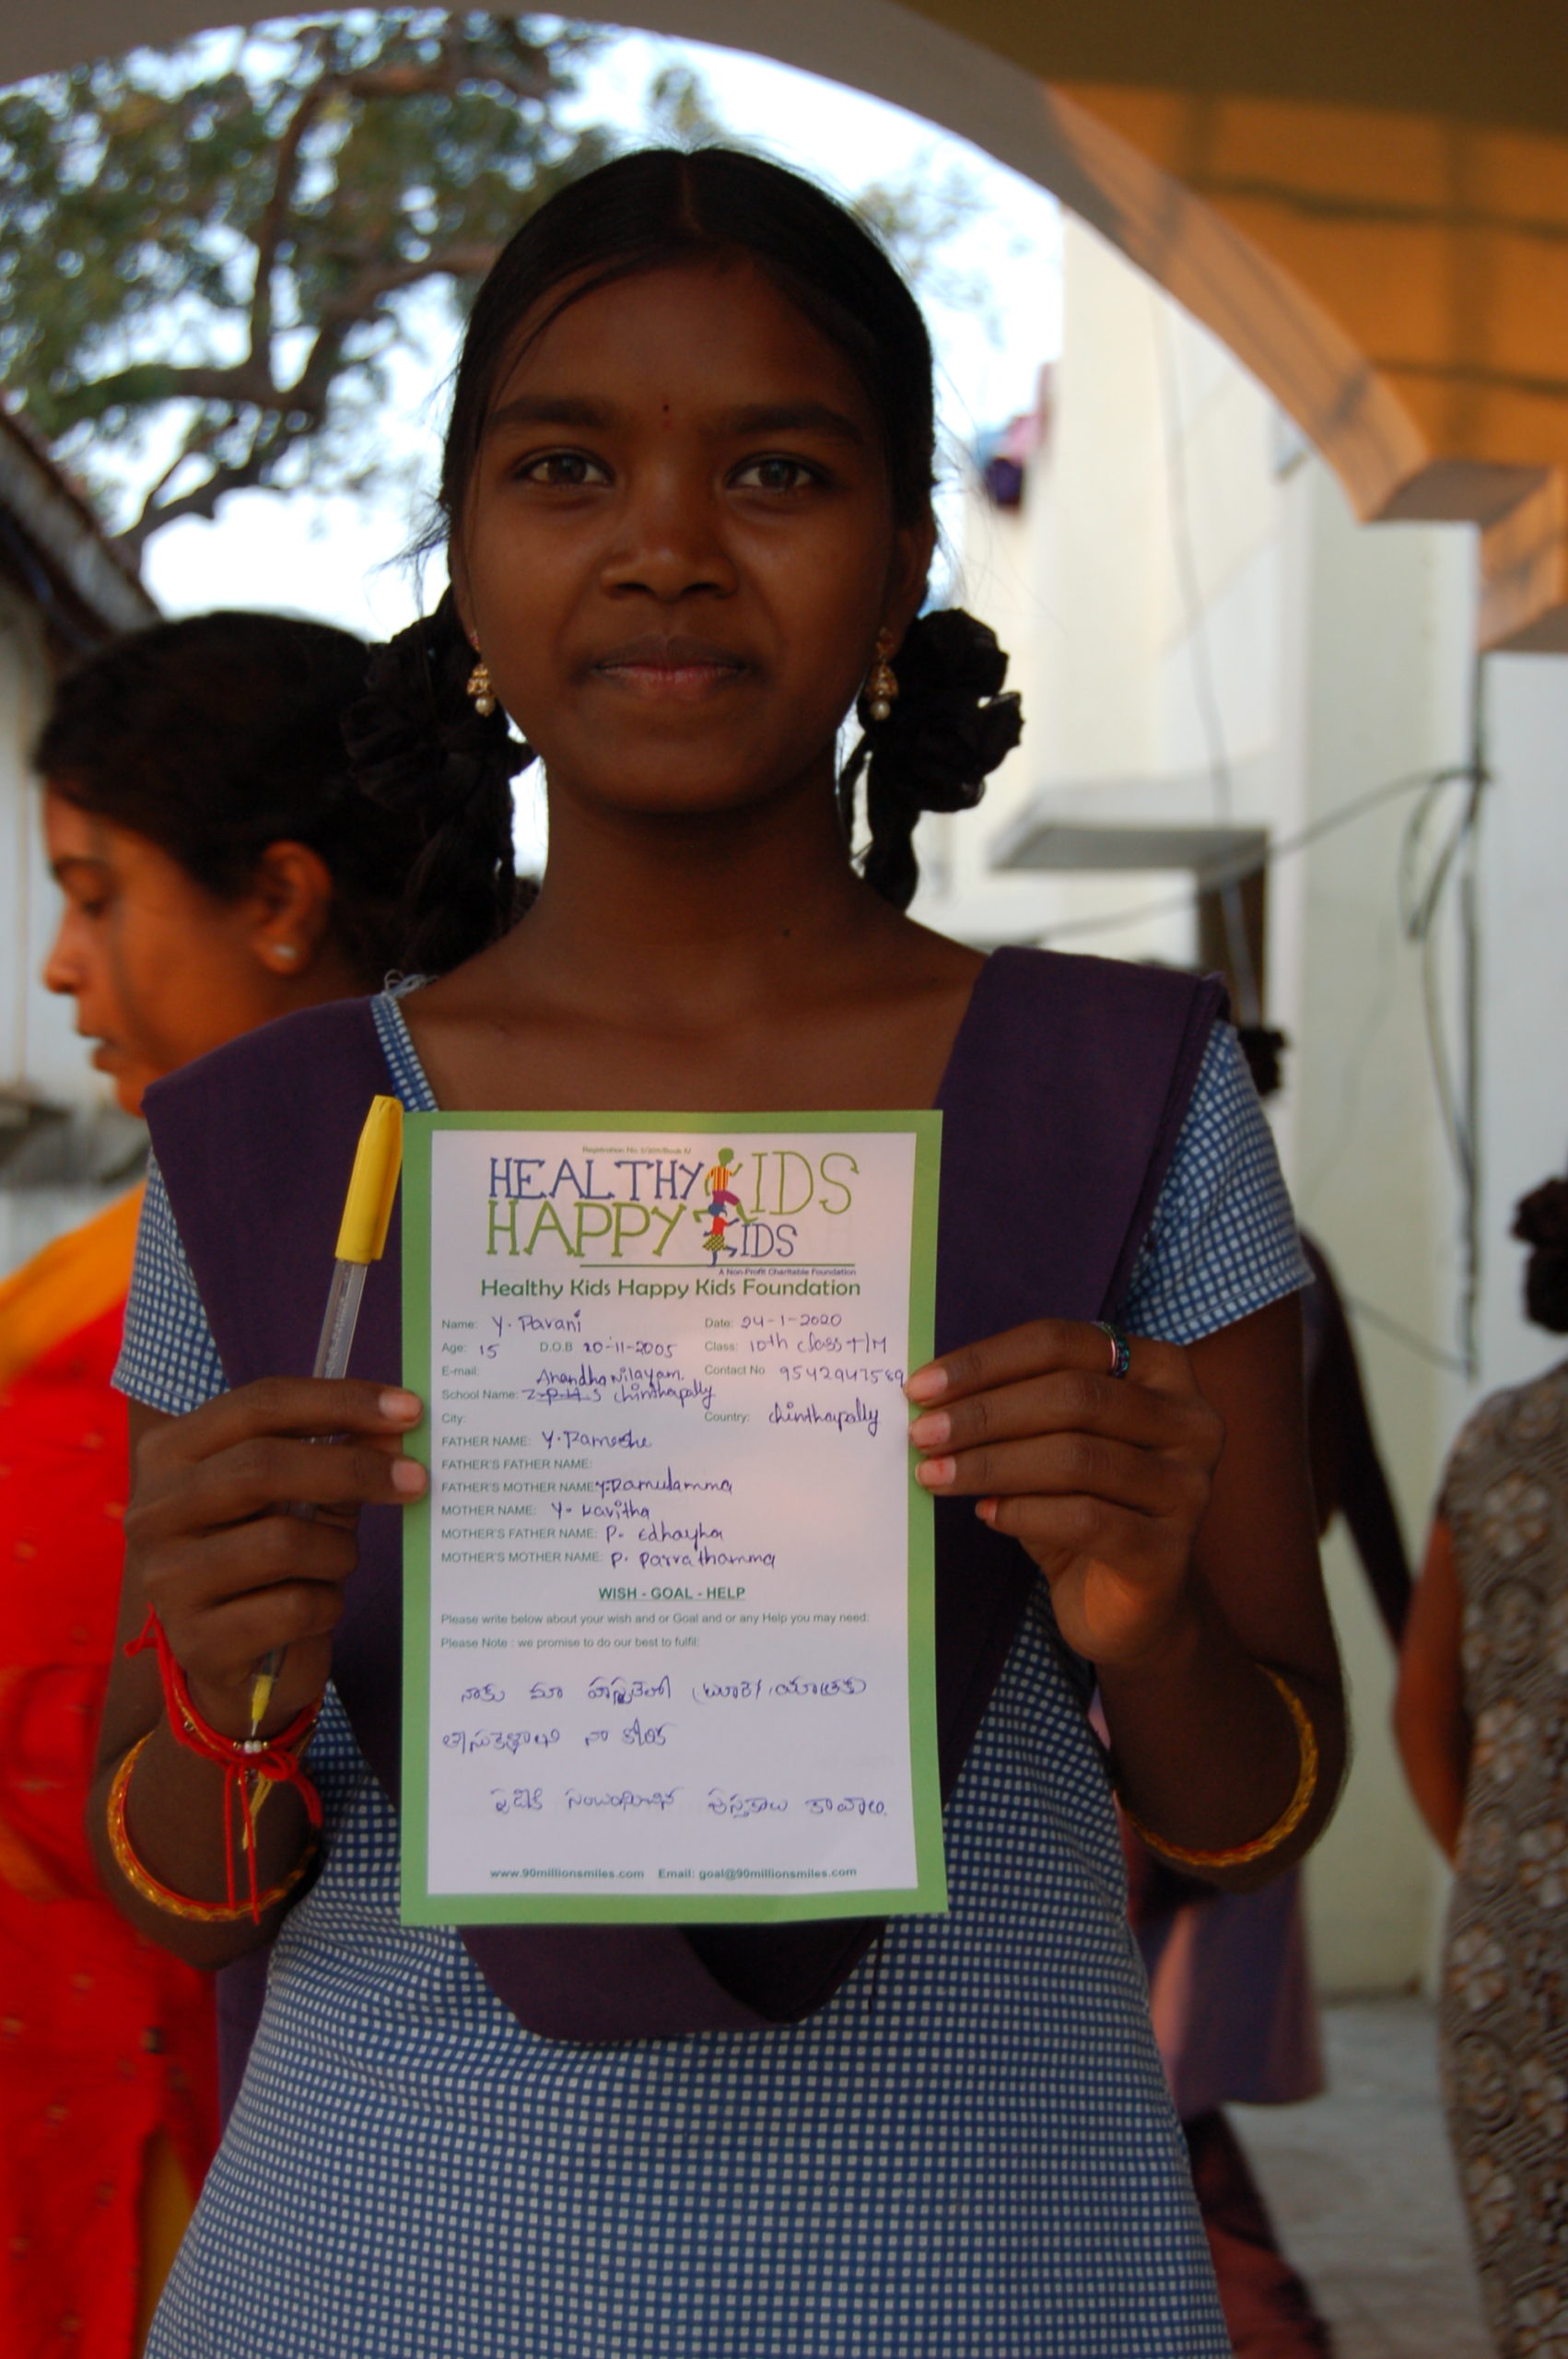 HEALTHY KIDS
HAPPY KIDS
A Non-Profit Charitable Foundation
Healthy Kids Happy Kids Foundation
Name: Y. Pavani Date: 24-1-2020
Age: 15 D.O.B 20-11-2005 Class: 10th class T/M
E-mail: Anandha Nilayam. Contact No 9542947589
School Name: Z.P.H.S Chinthapally
City: Country: Chinthapally
FATHER NAME: Y.
FATHER'S FATHER NAME:
FATHER'S MOTHER NAME: Y. Ramulamma
MOTHER NAME: Y. Kavitha
MOTHER'S FATHER NAME: P. Edhayha
MOTHER'S MOTHER NAME: P. Parvathamma
WISH - GOAL - HELP
Please write below about your wish and or Goal and or any Help you may need:
Please Note : we promise to do our best to fulfil:
నాకు మా
నా కోరిక
సంబంధించిన పుస్తకాలు కావాలి.
www.90millionsmiles.com Email: goal@90millionsmiles.com